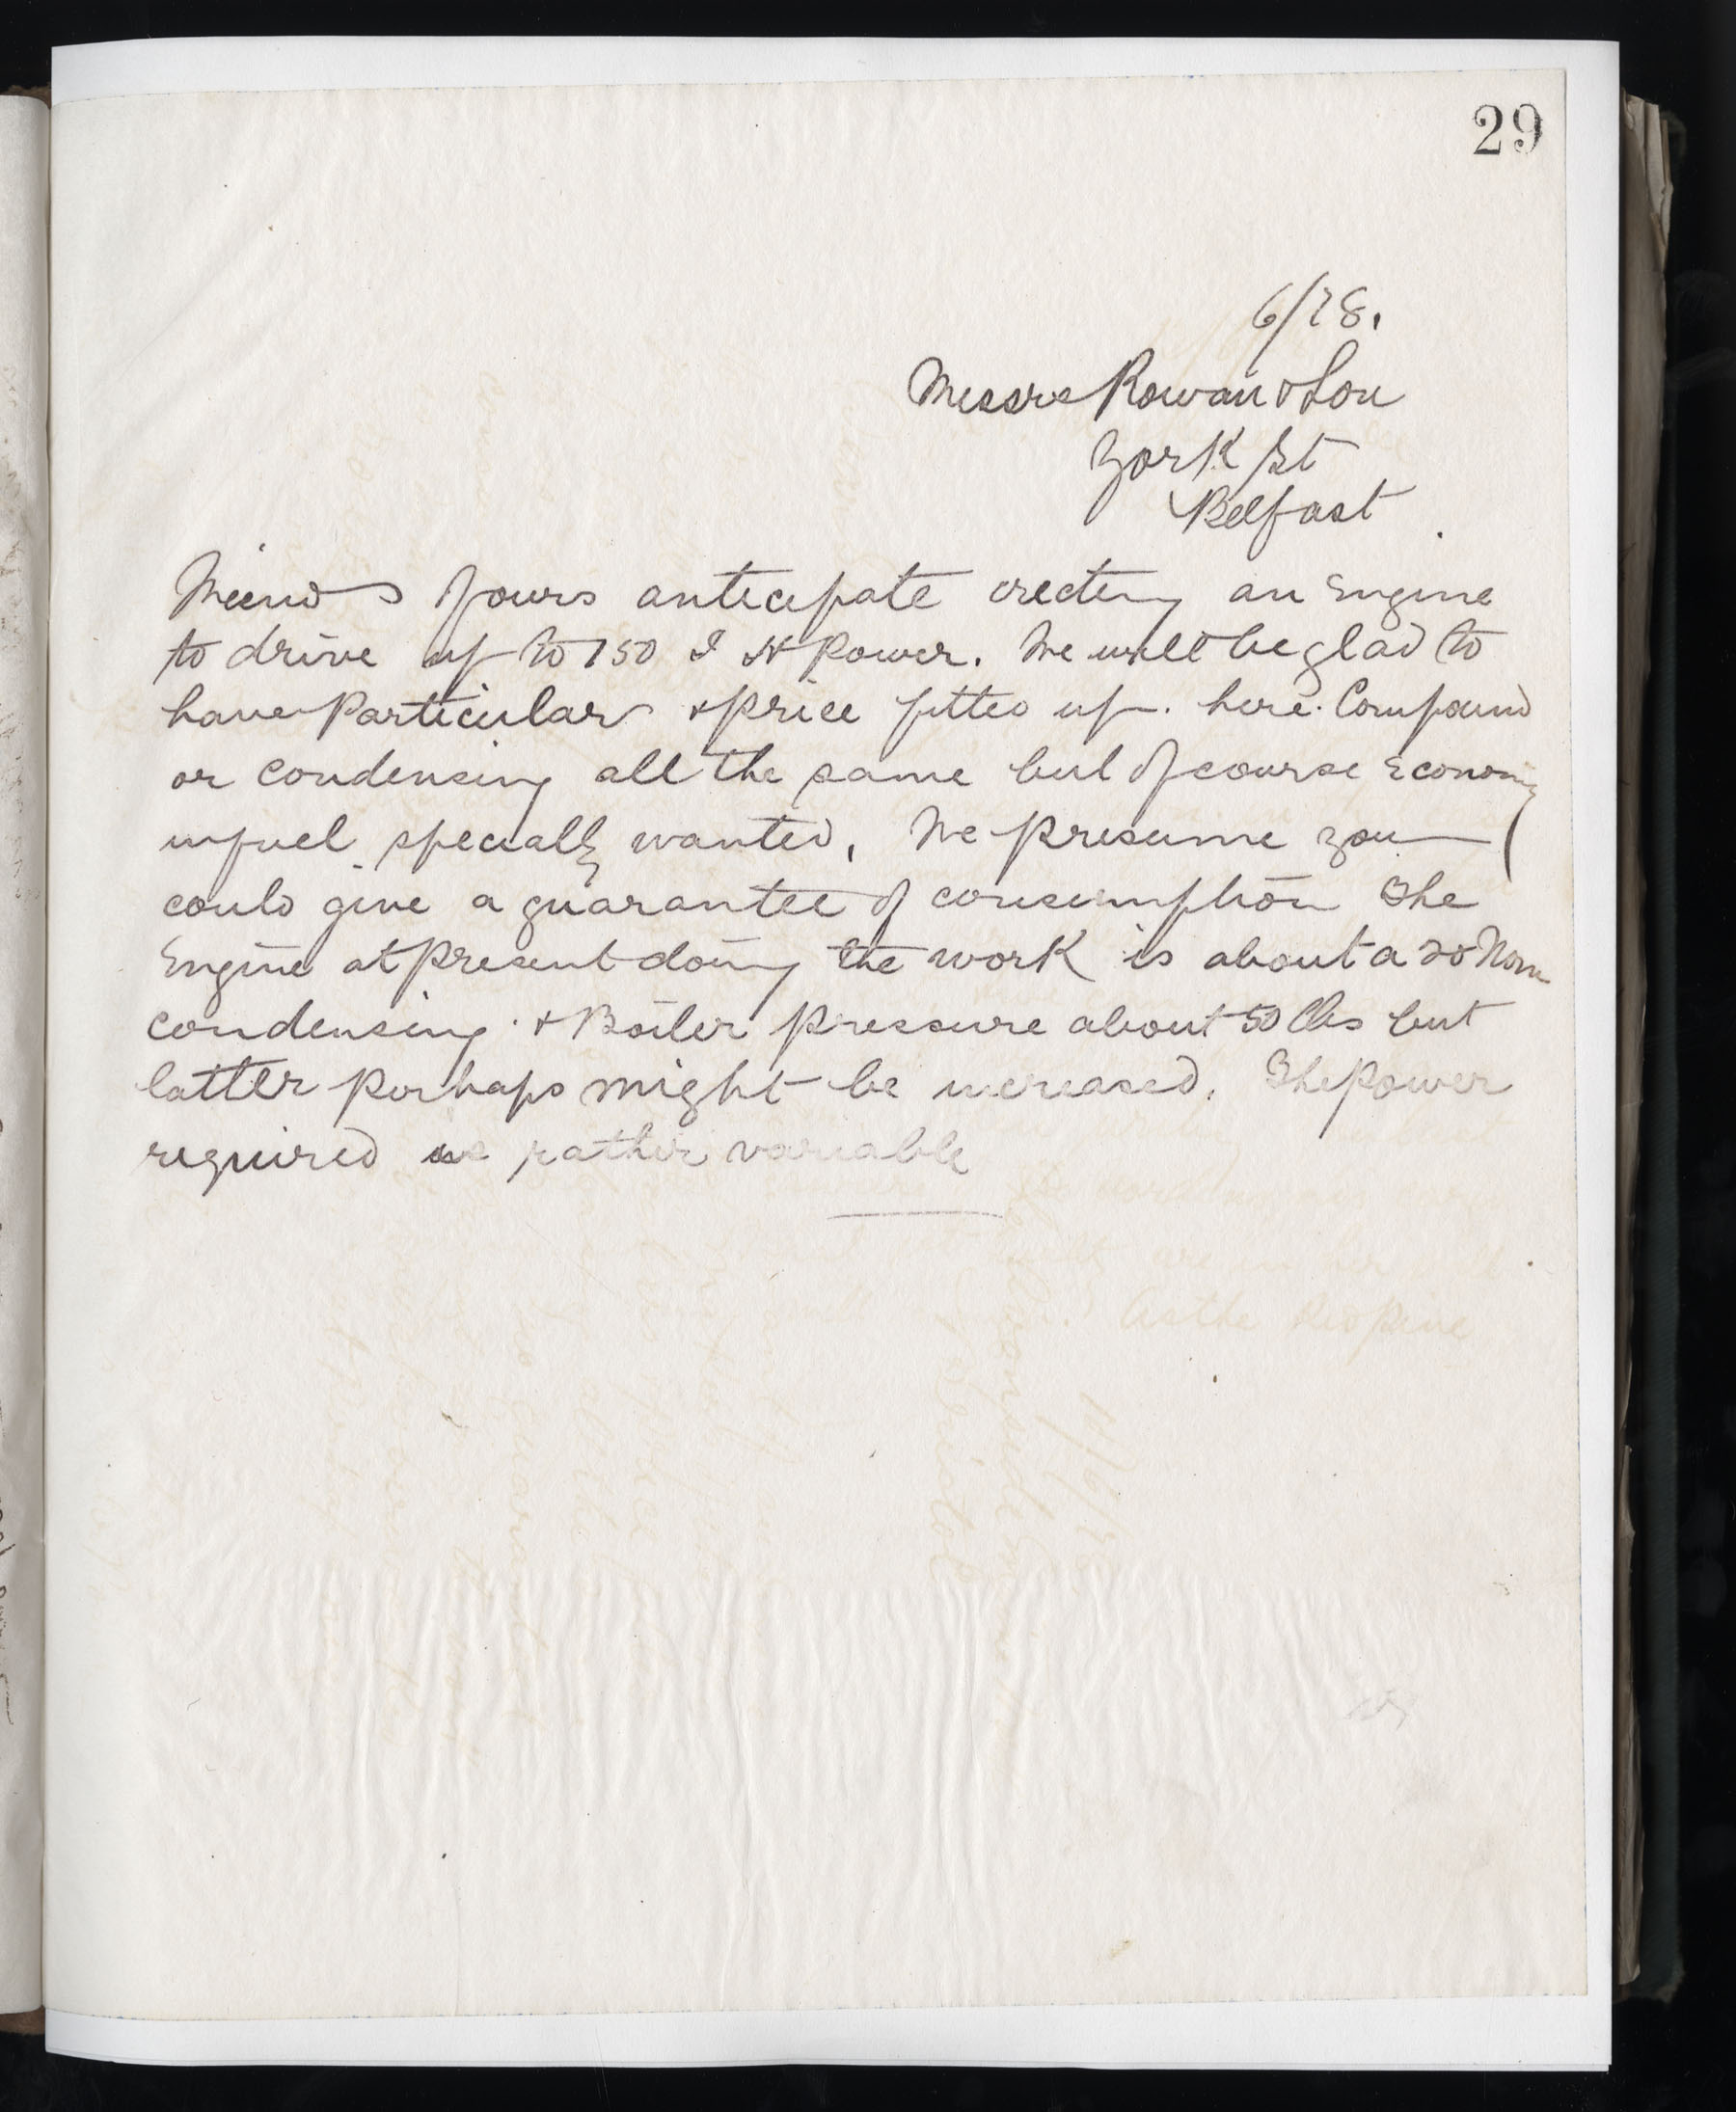 29
6/78.
Messrs Rowan & Son
York St
Belfast
Friends of ours anticipate erecting an Engine
to drive up to 150 I H Power. We will be glad to
have Particulars & price fitted up. here. Compound
or condensing all the same but of course Economy
in fuel specially wanted. We presume you
could give a guarantee of consumption The
Engine at present doing the work is about a 20 Nom
condensing & Boiler pressure about 50 lbs but
latter perhaps might be increased. The power
required is rather variable